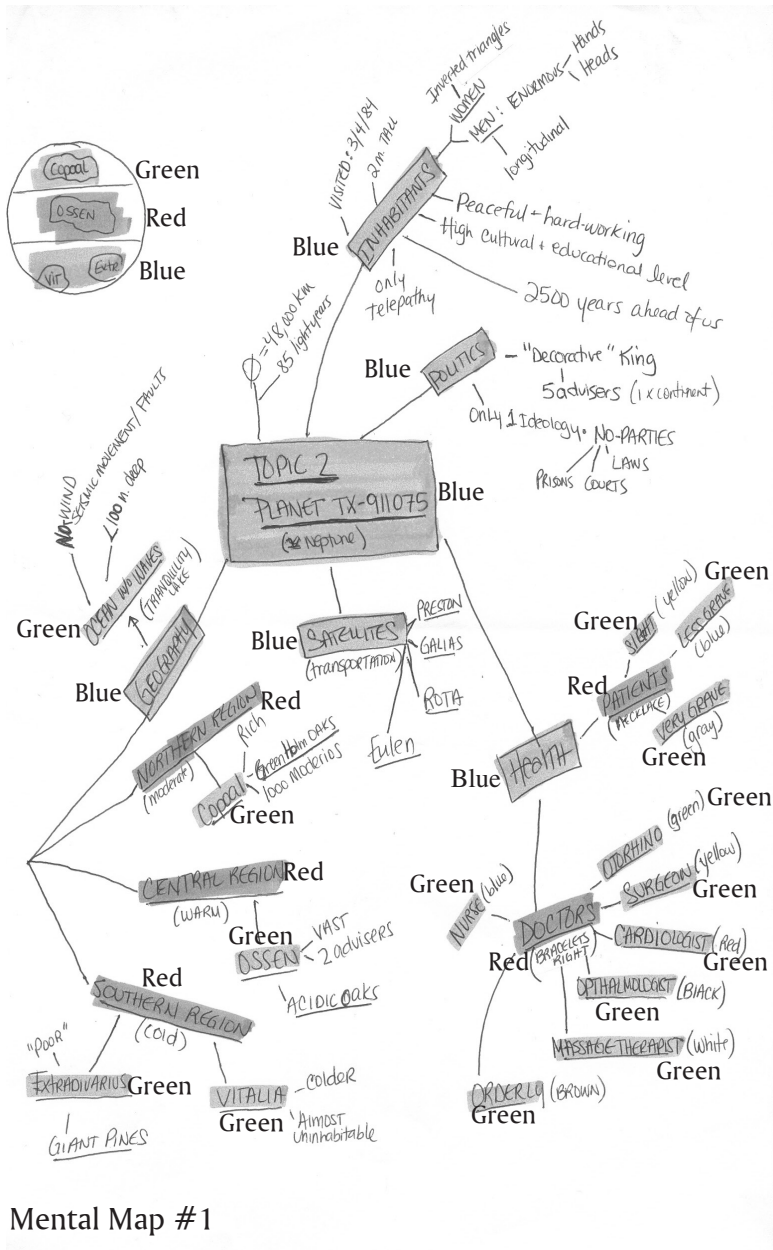 Copoal
Green
OSSEN
Red
Vit
Extr
Blue
Inverted triangles
WOMEN
MEN: ENORMOUS
Hands
Heads
longitudinal
VISITED: 3/4/84
2 m. TALL
INHABITANTS
Blue
Peaceful + hard-working
High cultural + educational level
2500 years ahead of us
only
telepathy
Ø = 48,000 KM
85 lightyears
Blue
POLITICS
"Decorative" King
5 advisers (1 x continent)
Only 1 Ideology
NO-PARTIES
LAWS
COURTS
PRISONS
TOPIC 2
PLANET TX-911075
Neptune)
Blue
NO-WIND
SEISMIC MOVEMENT/FAULTS
<100 m. deep
OCEAN W/O WAVES
(TRANQUILITY
LAKE
Green
GEOGRAPHY
Blue
Blue
SATELLITES
(transportation)
PRESTON
GALIAS
ROTA
Eulen
NORTHERN REGION
Red
(moderate)
Rich
Copoal
Green
Green Holm OAKS
1000 moderios
CENTRAL REGION
Red
(WARM)
Green
OSSEN
VAST
2 advisers
ACIDIC OAKS
Red
SOUTHERN REGION
(COLD)
"POOR"
EXTRADIVARIUS
Green
GIANT PINES
VITALIA
Green
colder
Almost
Uninhabitable
Blue
HEALTH
Red
PATIENTS
(NECKLACE)
Green
(yellow)
Green
LESS GRAVE
(blue)
VERY GRAVE
(gray)
Green
DOCTORS
Red
(BRACELETS
RIGHT)
Green
NURSE (blue)
OTORHINO (green)
Green
SURGEON (yellow)
Green
CARDIOLOGIST (Red)
Green
OPTHALMOLOGIST (BlACK)
Green
MASSAGE THERAPIST (White)
Green
ORDERLY (BROWN)
Green
Mental Map #1